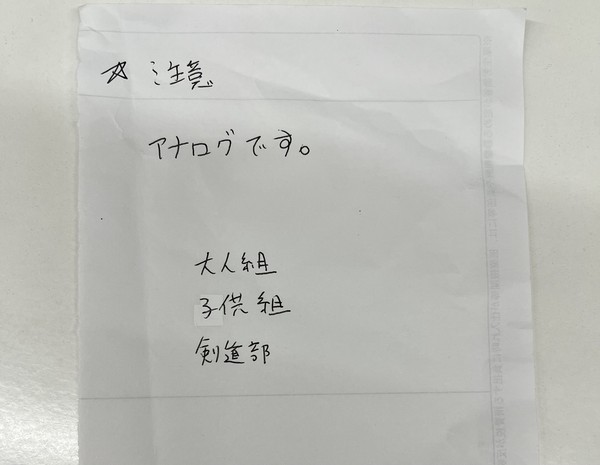 ☆ 注意
アナログです。
大人組
子供組
剣道部